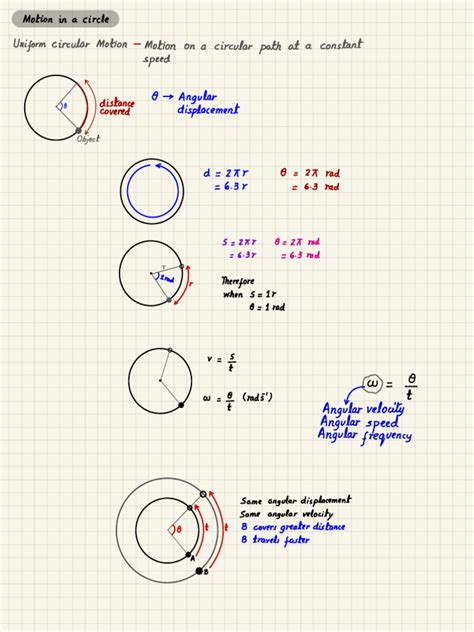 Motion in a circle
Uniform circular Motion — Motion on a circular path at a constant
speed
θ
distance
covered
Object
θ → Angular
displacement
d = 2πr
= 6.3r
θ = 2π rad
= 6.3 rad
S = 2πr
= 6.3r
θ = 2π rad
= 6.3 rad
r
1 rad
r
Therefore
when S = 1r
θ = 1 rad
v = s/t
ω = θ/t (rads⁻¹)
ω = θ/t
Angular velocity
Angular speed
Angular frequency
θ
t
t
A
B
Same angular displacement
Same angular velocity
B covers greater distance
B travels faster